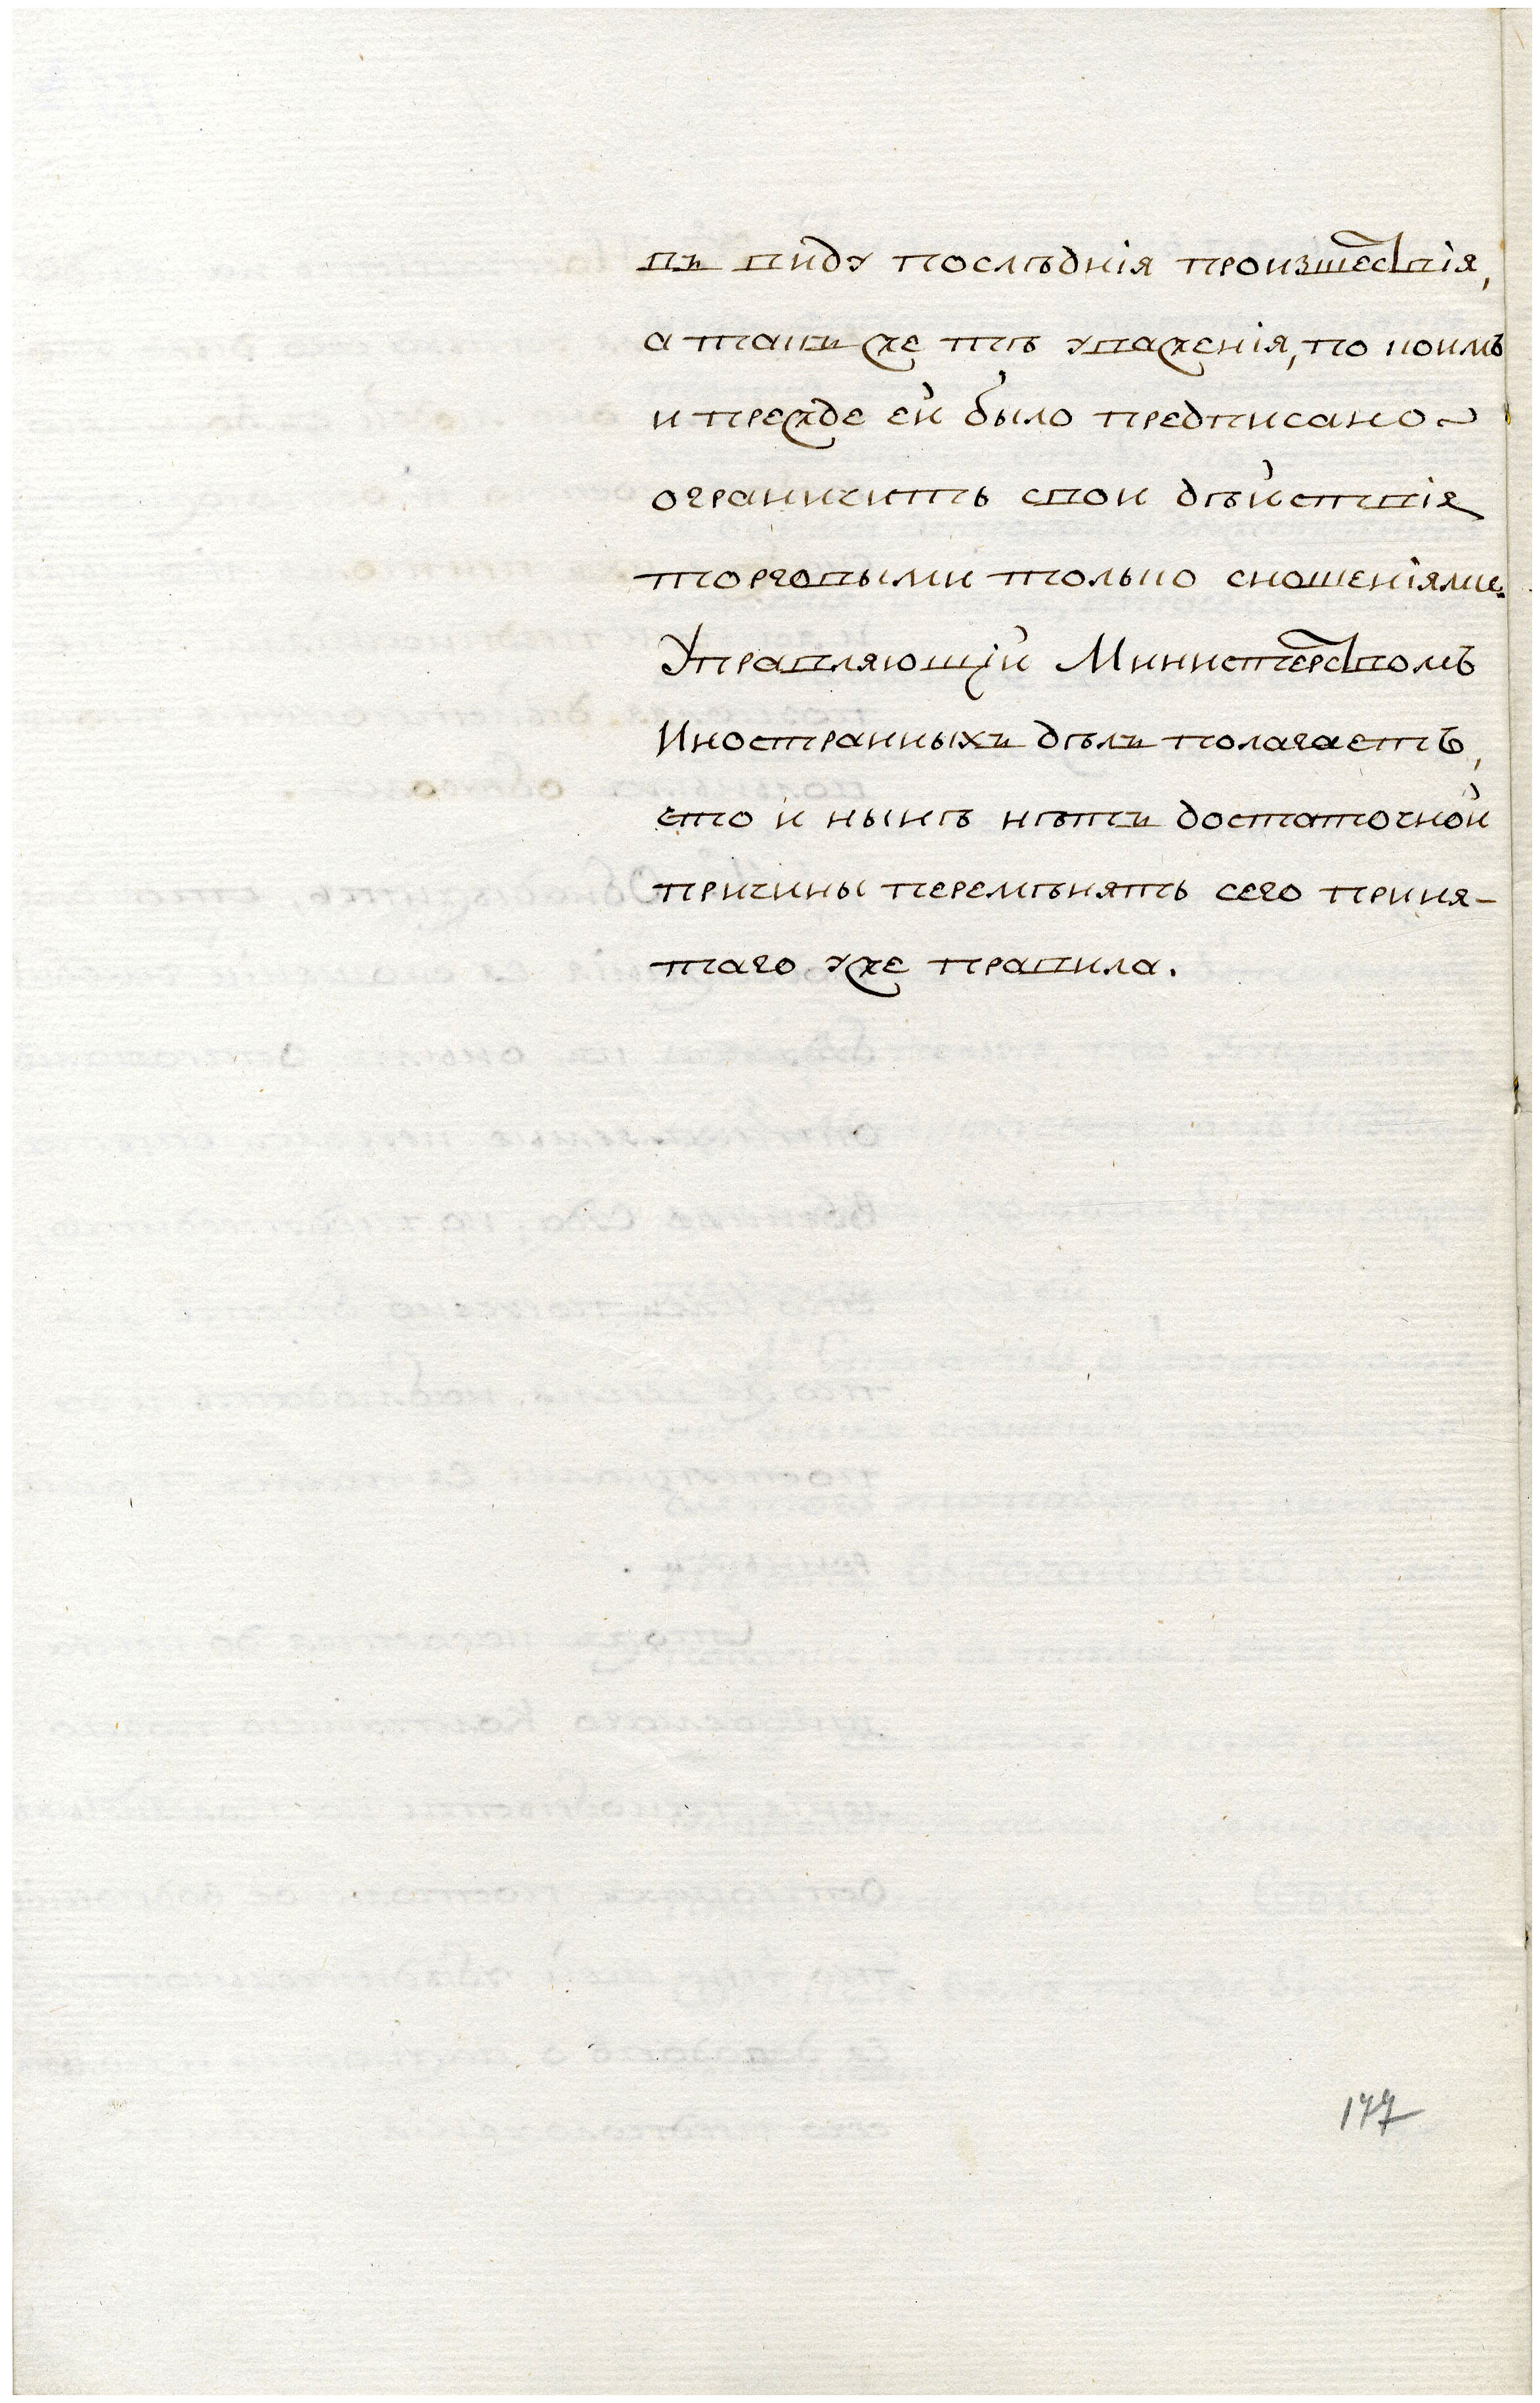 въ виду послѣднія произшествія,
а такъ же тѣ уваженія, по коимъ
и прежде ей было предписано
ограничить свои дѣйствія
торговыми только сношеніями.
Управляющій Министерствомъ
Иностранныхъ дѣлъ полагаетъ,
что и нынѣ нѣтъ достаточной
причины перемѣнять сего приня-
таго уже правила.
177